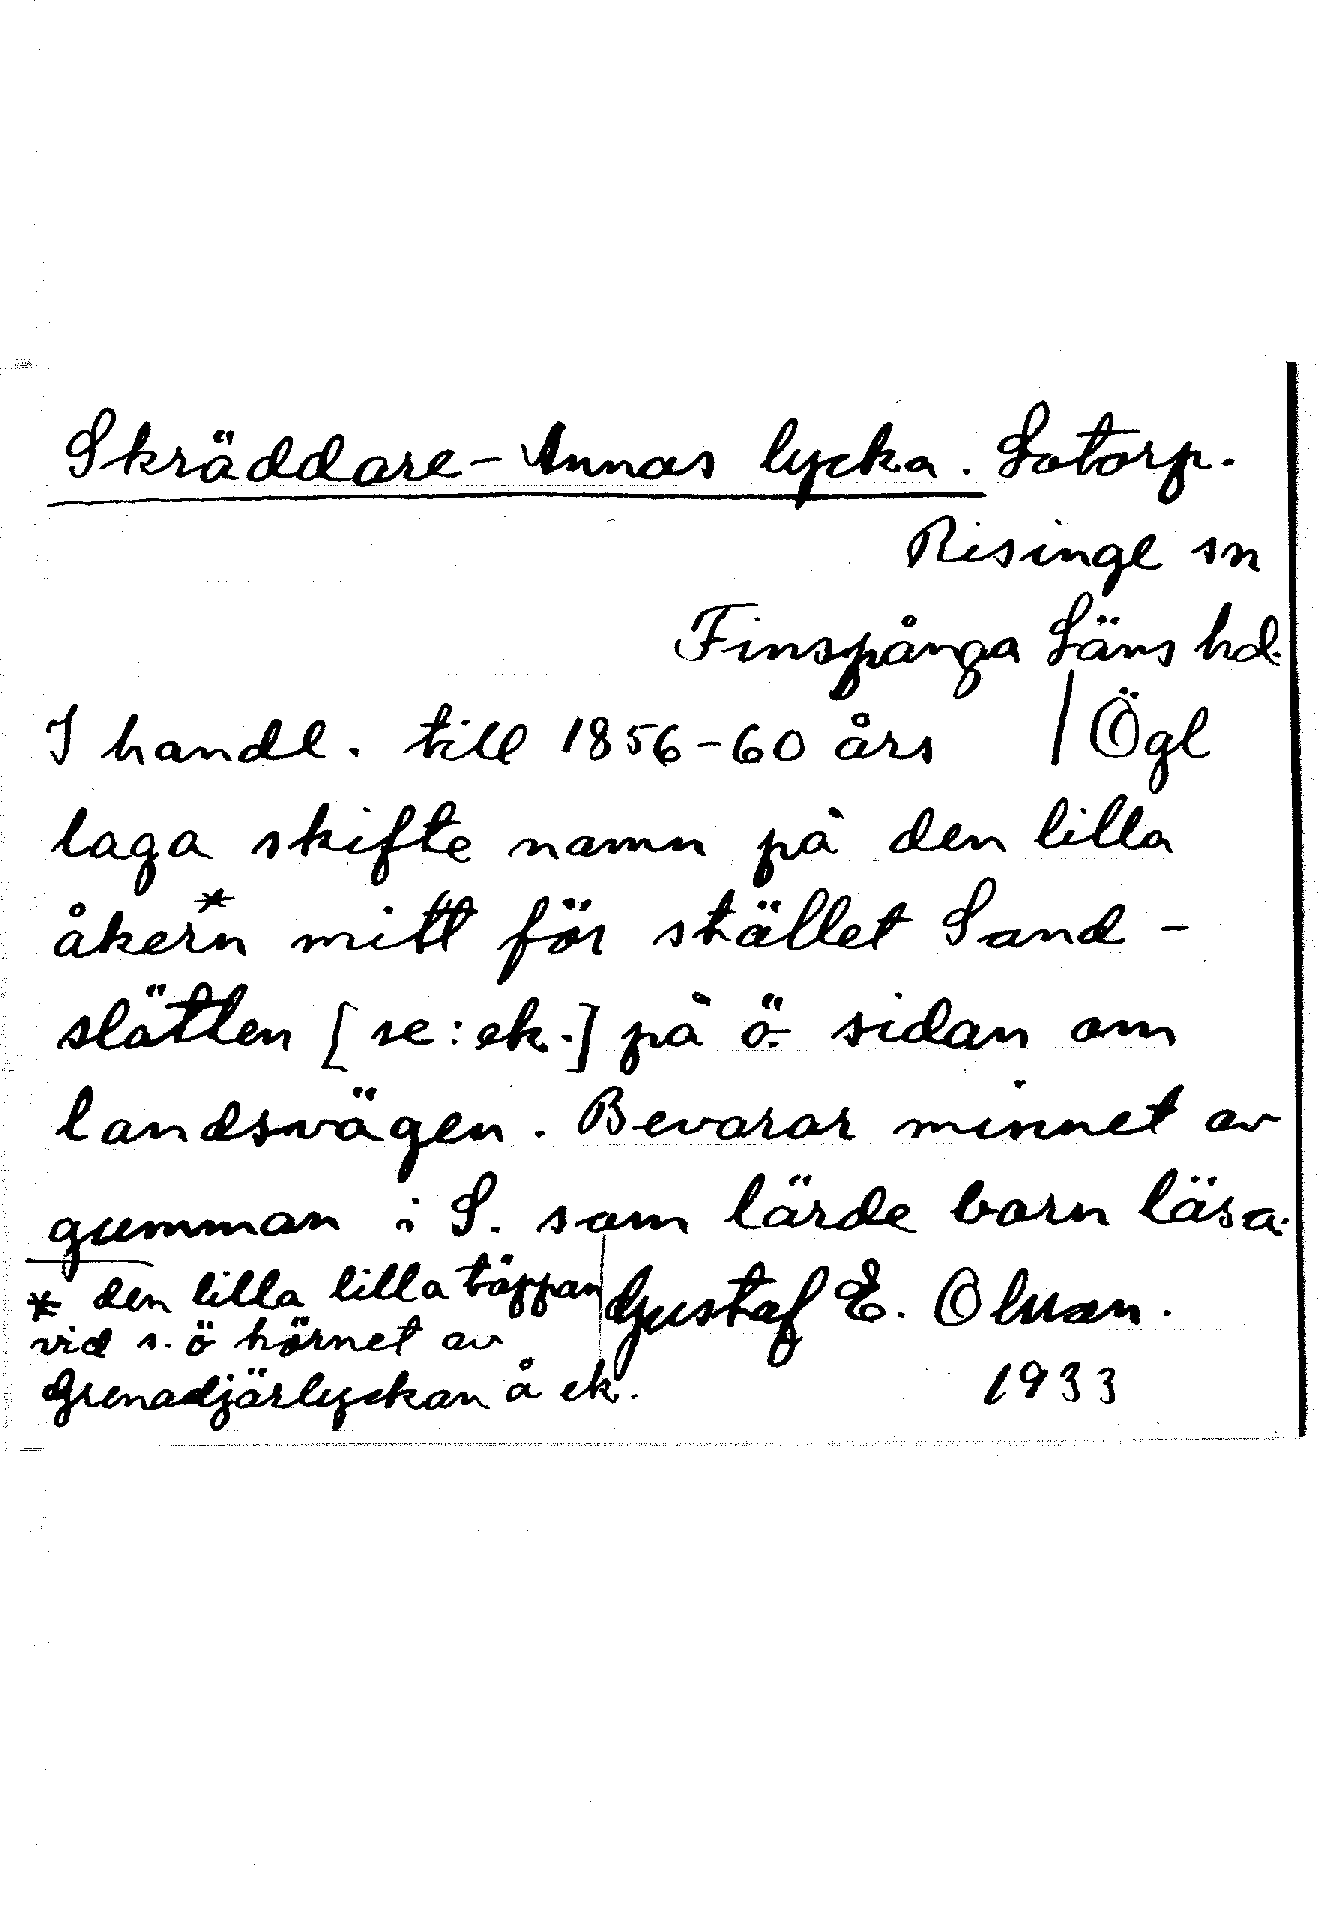 Skräddare-Annas lycka. Lotorp.
Risinge sn
Finspånga Läns hd.
I handl. till 1856-60 års / Ögl
laga skifte namn på den lilla
åkern* mitt för stället Sand-
slätten [se: ek.] på ö. sidan om
landsvägen. Bevarar minnet av
gumman i S. som lärde barn läsa.
* den lilla lilla täppan
vid s. ö hörnet av
Grenadjärlyckan å ek.
Gustaf E. Olson.
1933